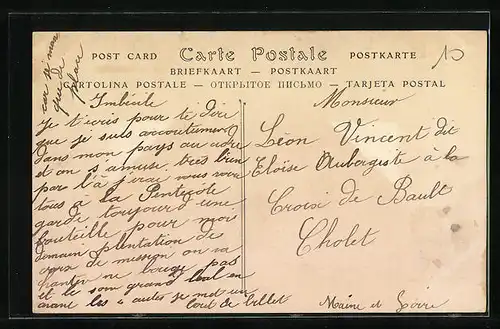 POST CARD Carte Postale POSTKARTE
BRIEFKAART — POSTKAART
CARTOLINA POSTALE — ОТКРЫТОЕ ПИСЬМО — TARJETA POSTAL
que de
place
10
Imbécile
Je t'ecris pour te dire
que je suis
dans mon pays au
et on s amuse tres bien
par l'à j'irai vous voir
tous à la Pentecôte
garde toujours d'une
bouteille pour moi
demain plentation de
croix de on va
chanter ne bouge pas
et le som grand bal en
avant les autes se met un
bout de billet
Monsieur
Léon Vincent dit
Eloïse Aubergiste à la
Croix de Bault
Cholet
Maine et Loire